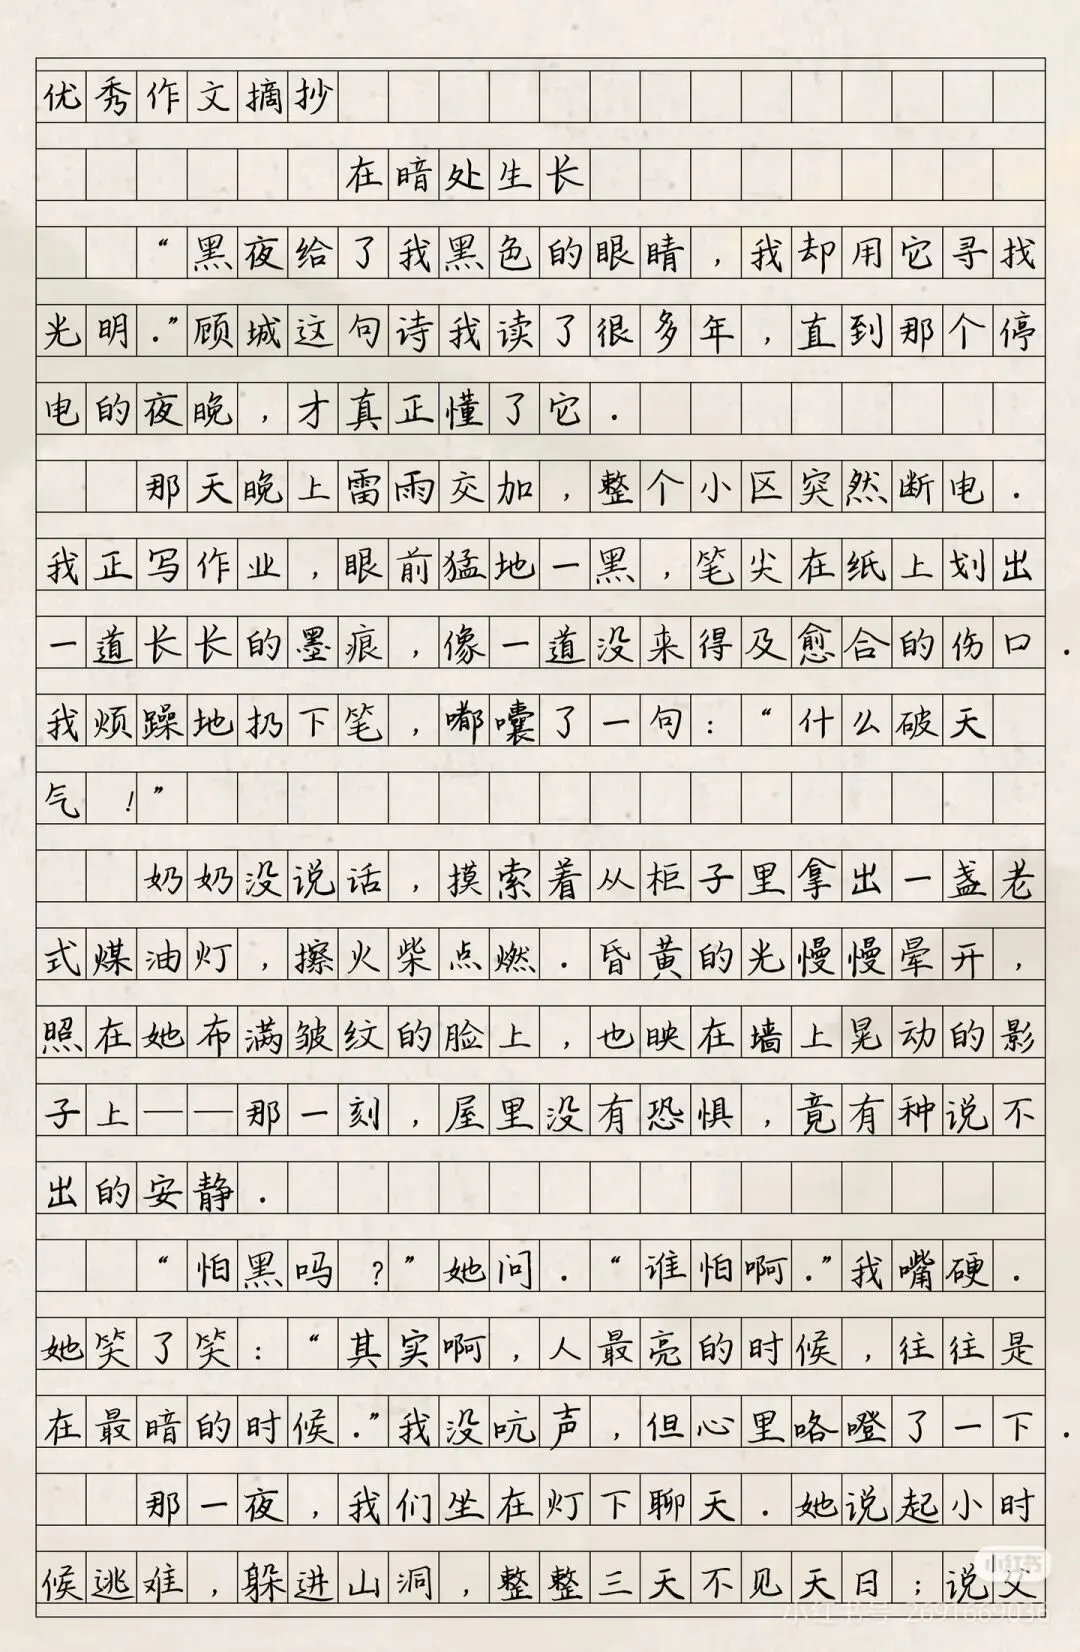 优秀作文摘抄
在暗处生长
“黑夜给了我黑色的眼睛，我却用它寻找
光明.”顾城这句诗我读了很多年，直到那个停
电的夜晚，才真正懂了它.
那天晚上雷雨交加，整个小区突然断电.
我正写作业，眼前猛地一黑，笔尖在纸上划出
一道长长的墨痕，像一道没来得及愈合的伤口.
我烦躁地扔下笔，嘟囔了一句：“什么破天
气!”
奶奶没说话，摸索着从柜子里拿出一盏老
式煤油灯，擦火柴点燃.昏黄的光慢慢晕开，
照在她布满皱纹的脸上，也映在墙上晃动的影
子上——那一刻，屋里没有恐惧，竟有种说不
出的安静.
“怕黑吗?”她问.“谁怕啊.”我嘴硬.
她笑了笑：“其实啊，人最亮的时候，往往是
在最暗的时候.”我没吭声，但心里咯噔了一下.
那一夜，我们坐在灯下聊天.她说起小时
候逃难，躲进山洞，整整三天不见天日；说父
小红书
小红书号 2691669036